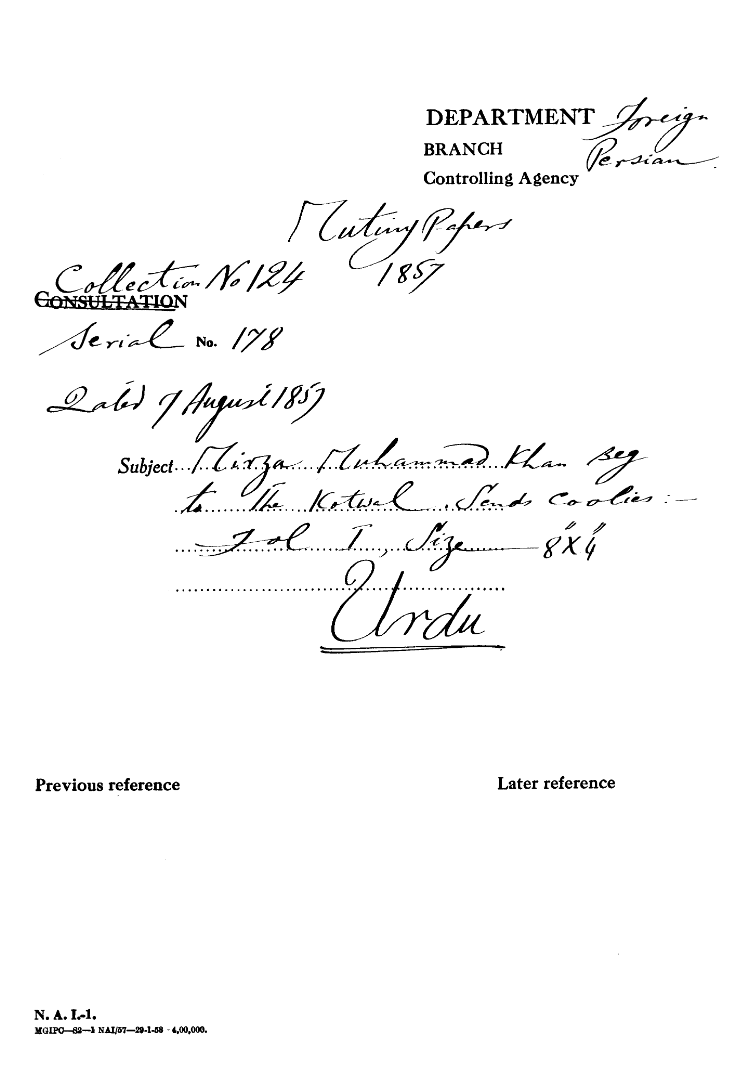 DEPARTMENT Foreign
BRANCH Persian
Controlling Agency
Mutiny Papers
1857
Collection No 124
CONSULTATION
Serial No. 178
Dated 7 August 1857
Subject Mirza Muhammad Khan Beg
to The Kotwal. Sends Coolies:—
Fol I, Size — 8"X4"
Urdu
Previous reference
Later reference
N. A. I.-1.
MGIPC—82—1 NAI/57—29-1-58 - 4,00,000.